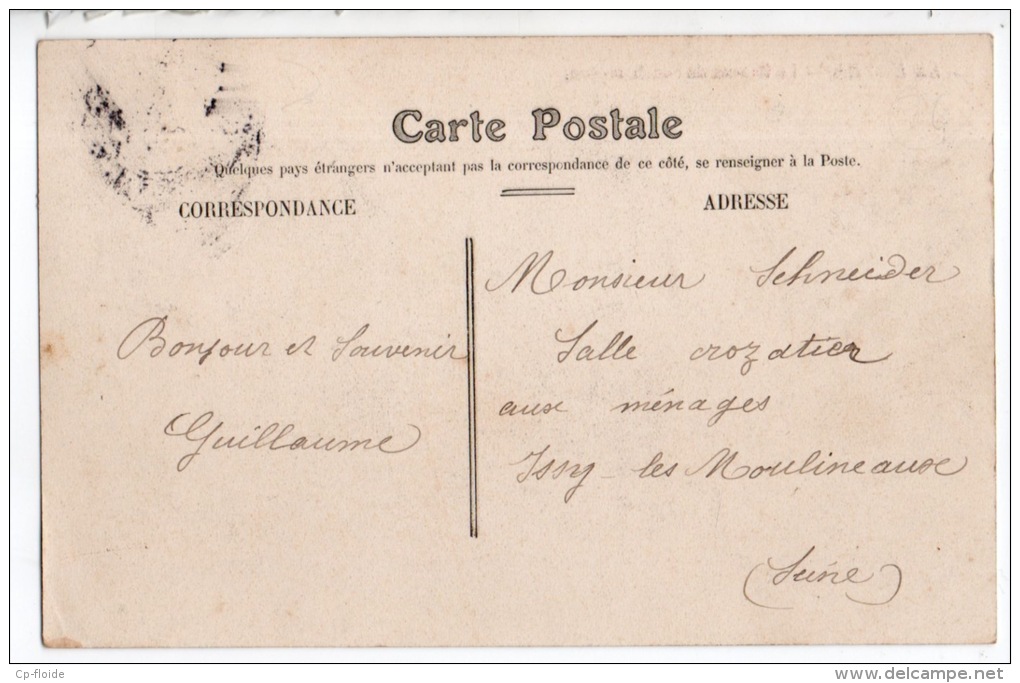 Carte Postale
Quelques pays étrangers n'acceptent pas la correspondance de ce côté, se renseigner à la Poste.
CORRESPONDANCE
Bonjour et Souvenir
Guillaume
ADRESSE
Monsieur Schneider
Salle crozatier
aux ménages
Issy-les Moulineaux
(Seine)
Cp-floide
www.delcampe.net